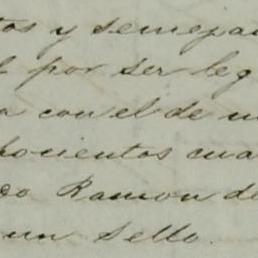 tos y semepa
l por ser leg
a con el de m
hocientos cua
do Ramon de
un Sello.